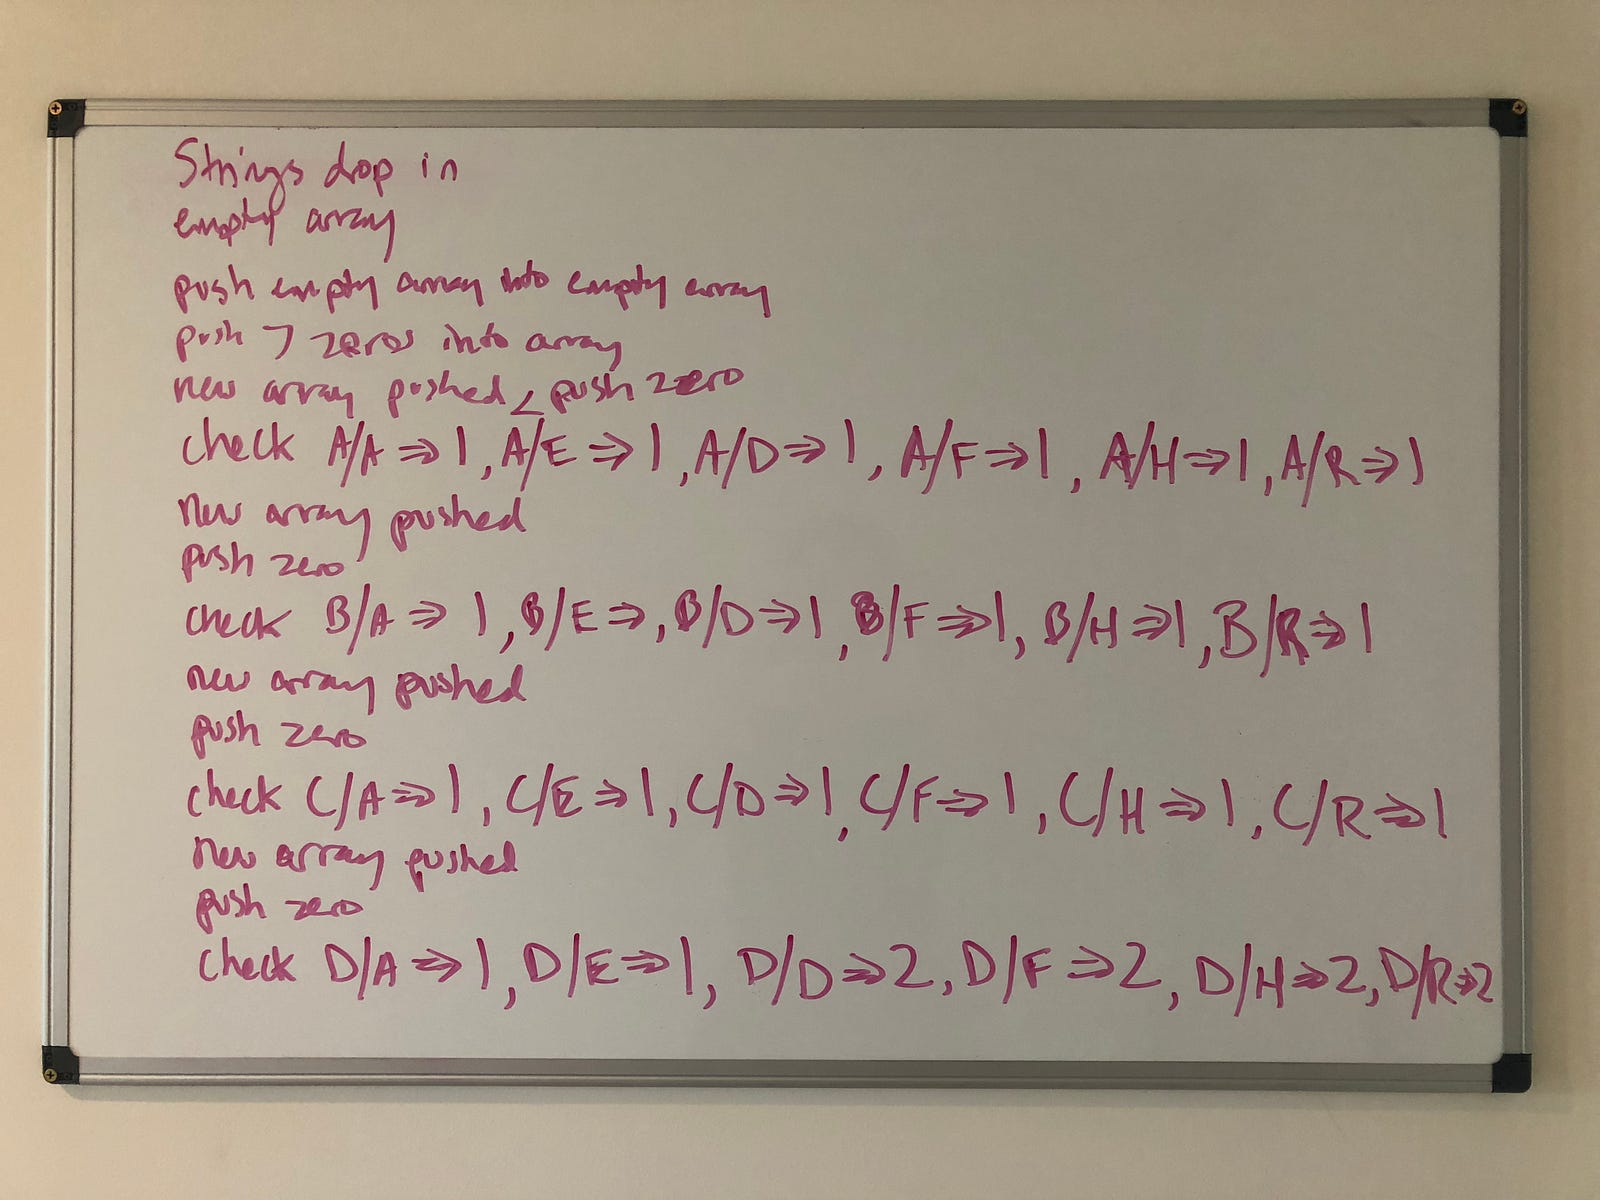 Strings drop in
empty array
push empty array into empty array
push 7 zeros into array
new array pushed < push zero
check A/A ⇒ 1, A/E ⇒ 1, A/D ⇒ 1, A/F ⇒ 1, A/H ⇒ 1, A/R ⇒ 1
new array pushed
push zero
check B/A ⇒ 1, B/E ⇒, B/D ⇒ 1, B/F ⇒ 1, B/H ⇒ 1, B/R ⇒ 1
new array pushed
push zero
check C/A ⇒ 1, C/E ⇒ 1, C/D ⇒ 1, C/F ⇒ 1, C/H ⇒ 1, C/R ⇒ 1
new array pushed
push zero
check D/A ⇒ 1, D/E ⇒ 1, D/D ⇒ 2, D/F ⇒ 2, D/H ⇒ 2, D/R ⇒ 2